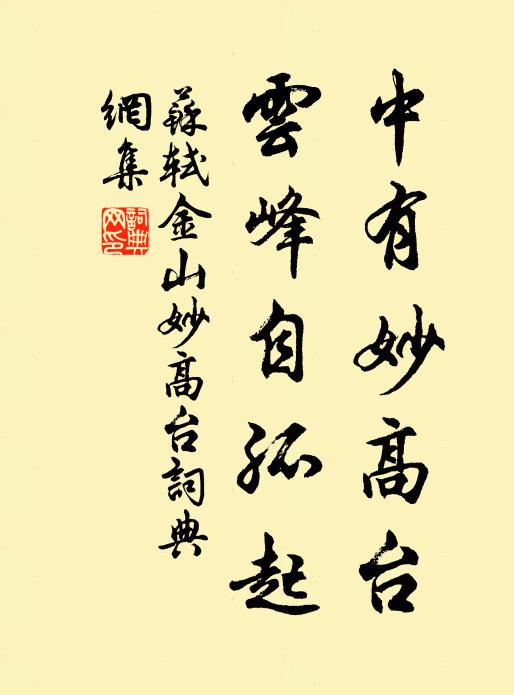 中有妙高台
雲峰自孤起
蘇軾金山妙高台詞典
網集
詞典
网印